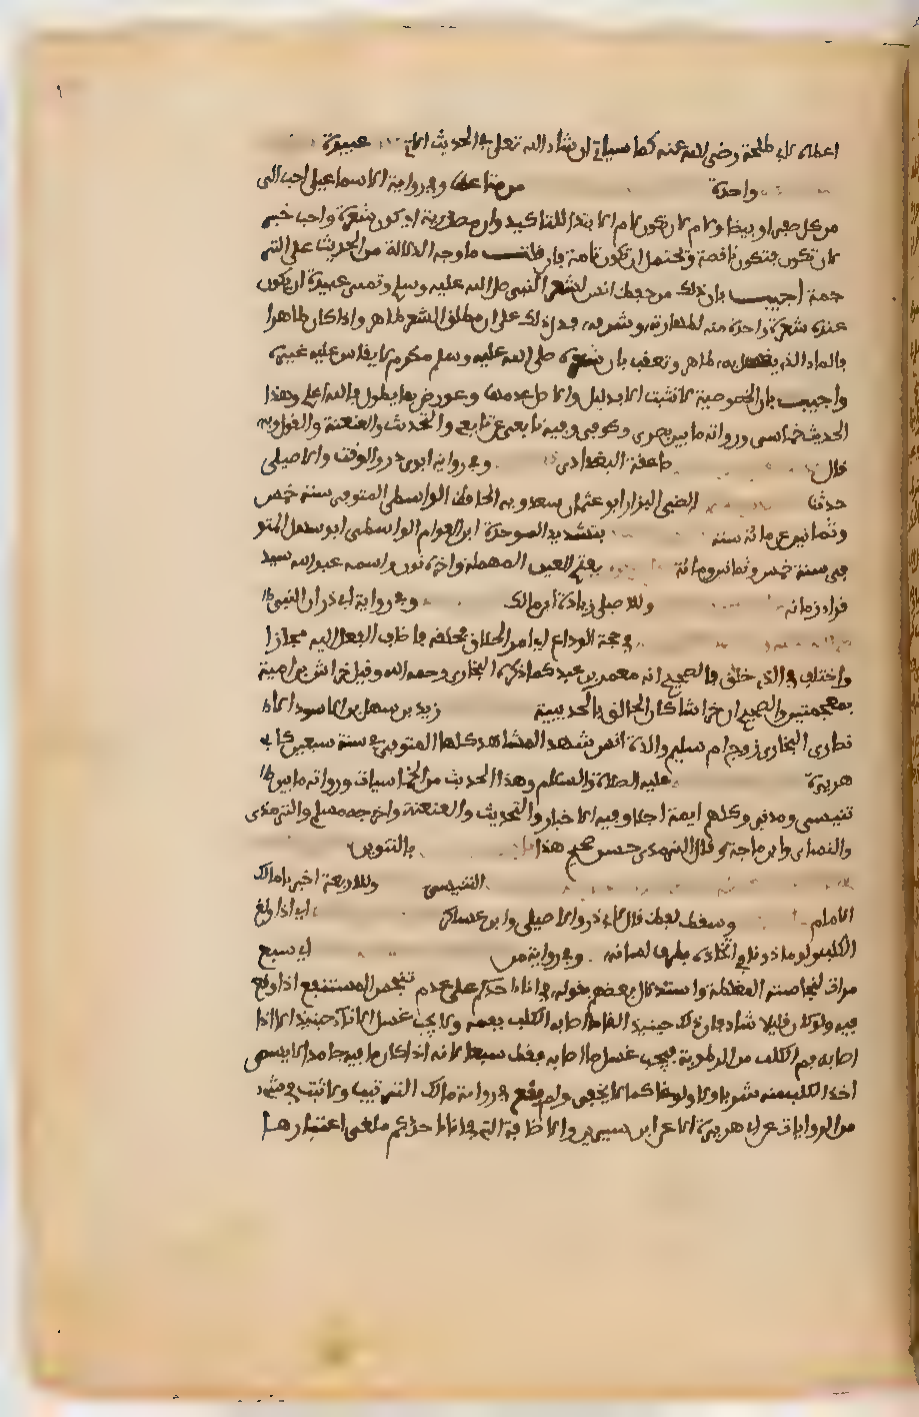 اعطاه لابي طلحة رضي الله عنه كما سياتي ان شاء الله تعلى في الحديث الاتي عبيدة
واحدة من متاعها وفي رواية الاسماعيلي احب الي
من كل صفرا وبيضا ولام لان تكون لام الابتدا للتاكيد وان مصدرية اي كون شعرة واحب خبر
لان تكون فتكون ناقصة ويحتمل ان تكون تامة فان قلت ما وجه الدلالة من الحديث على الترجمة
اجيب بان ذلك من حفظ انس لشعر النبي صلى الله عليه وسلم وتمنى عبيدة ان يكون
عنده شعرة واحدة منه لطهارته وشرفه فدل ذلك على ان مطلق الشعر طاهر واذا كان طاهرا
فالماء الذي يغسل به طاهر وتعقب بان شعره صلى الله عليه وسلم مكرم لا يقاس عليه غيره
واجيب بان الخصوصية لا تثبت الا بدليل والاصل عدمها وعورض بما يطول والله اعلم وهذا
الحديث خماسي ورواته ما بين بصري وكوفي وفيه تابعي عن تابعي والتحديث والعنعنة والقول وبه
قال صاعقة البغدادي وفي رواية ابوي ذر والوقت والاصيلي
حدثنا الضبي البزار ابو عثمان سعدويه الحافظ الواسطي المتوفى سنة خمس
وثمانين عن مائة سنة بتشديد الموحدة ابن العوام الواسطي ابو سهل المتو
فى سنة خمس وثمانين ومائة بفتح العين المهملة واخره نون واسمه عبد الله سيد
قراء زمانه وللاصيلي زيادة ابن مالك وفي رواية ابي ذر ان النبي
في حجة الوداع اي امر الحلاق فحلقه فاضاف الفعل اليه مجازا
واختلف في الذي حلق فالصحيح انه معمر بن عبد كما ذكره البخاري رحمه الله وقيل خراش بن امية
بمعجمتين والصحيح ان خراشا كان الحالق بالحديبية زيد بن سهل بن الاسود الا
نصاري النجاري زوج ام سليم والدة انس شهد المشاهد كلها المتوفى في سنة سبعين لابي
هريرة عليه الصلاة والسلام وهذا الحديث من الخماسيات ورواته ما بين
تنيسي ومدني وكلهم ايمة اجلا وفيه الاخبار والتحديث والعنعنة واخرجه مسلم والترمذي
والنساي وابن ماجة وقال الترمذي حسن صحيح هذا بالتنوين
التنيسي وللاربعة اخبرنا مالك
الامام وسقط لفظ قال لابي ذر والاصيلي وابن عساكر اي اذا ولغ
الكلب ولو ماذونا في اتخاذه بطرف لسانه وفي رواية من اي سبع
مرات لنجاسته المغلظة واستدل بعضهم بقوله في اناء احدكم على عدم تنجس المستنقع اذا ولغ
فيه ولو كان قليلا شاذ فان ذلك حينئذ الغا اصابه الكلب بفمه ولا يجب غسل الاناء حينئذ الا اذا
اصابه فم الكلب من الرطوبة فيجب غسل ما اصابه فقط سبعا لانه اذا كان ما فيه جامدا لا يسمى
اخذ الكلب منه شربا ولا ولوغا كما لا يخفى ولم يقع في رواية مالك التتريب ولا ثبت في شيء
من الروايات عن ابي هريرة الا عن ابن سيرين والاضافة التي في اناء احدكم ملغى اعتبارها